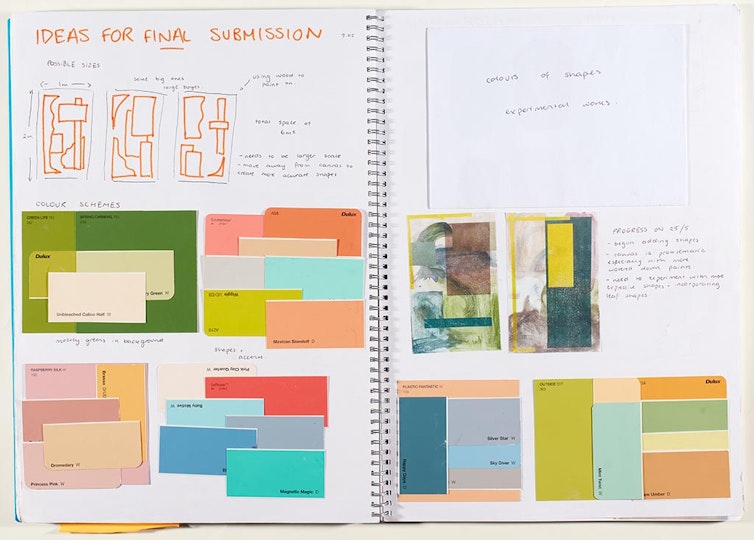 IDEAS FOR FINAL SUBMISSION
POSSIBLE SIZES
← 1m →
2m
some big ones
using wood to
paint on
total space of
- needs to be larger scale
- move away from canvas to
create more accurate shapes
COLOUR SCHEMES
GREEN LIFE
SPRING CARNIVAL
Dulux
Green W
Unbleached Calico Half W
mostly greens in background
Dulux
Wiggle
Mexican Standoff D
shapes +
accents
RASPBERRY SILK W
Dromedary W
Princess Pink W
Pink Clay Quarter W
Baby Motive
Magnetic Magic D
colours of shapes
experimental works.
PROGRESS ON 25/5
- begin adding shapes
- canvas is problematic
especially with more
watered down paints
- need to experiment with more
expressive shapes + incorporating
leaf shapes
PLASTIC FANTASTIC W
Silver Star W
Sky Diver W
OUTSIDE
Dulux
Mint Twist
Umber D